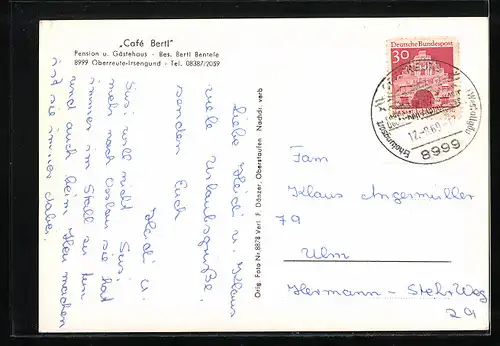 „Café Bertl"
Pension u. Gästehaus - Bes. Bertl Bentele
8999 Oberreute-Irsengund - Tel. 08387/2059
Liebe Heidi u. Klaus
viele Urlaubsgrüße,
senden Euch
Heidi u.
Susi
Susi will nicht
mehr nach sie hat
immer im Stall zu tun
und auch beim Heu machen
ist sie immer dabei.
Orig. Foto Nr. 8878 Verl. F. Dänzer, Oberstaufen Nachdr. verb.
Deutsche Bundespost
30
Erholungsort
(Westallgäu)
8999
Fam
Klaus Angermüller
79
Ulm
Hermann - Stehr Weg
29